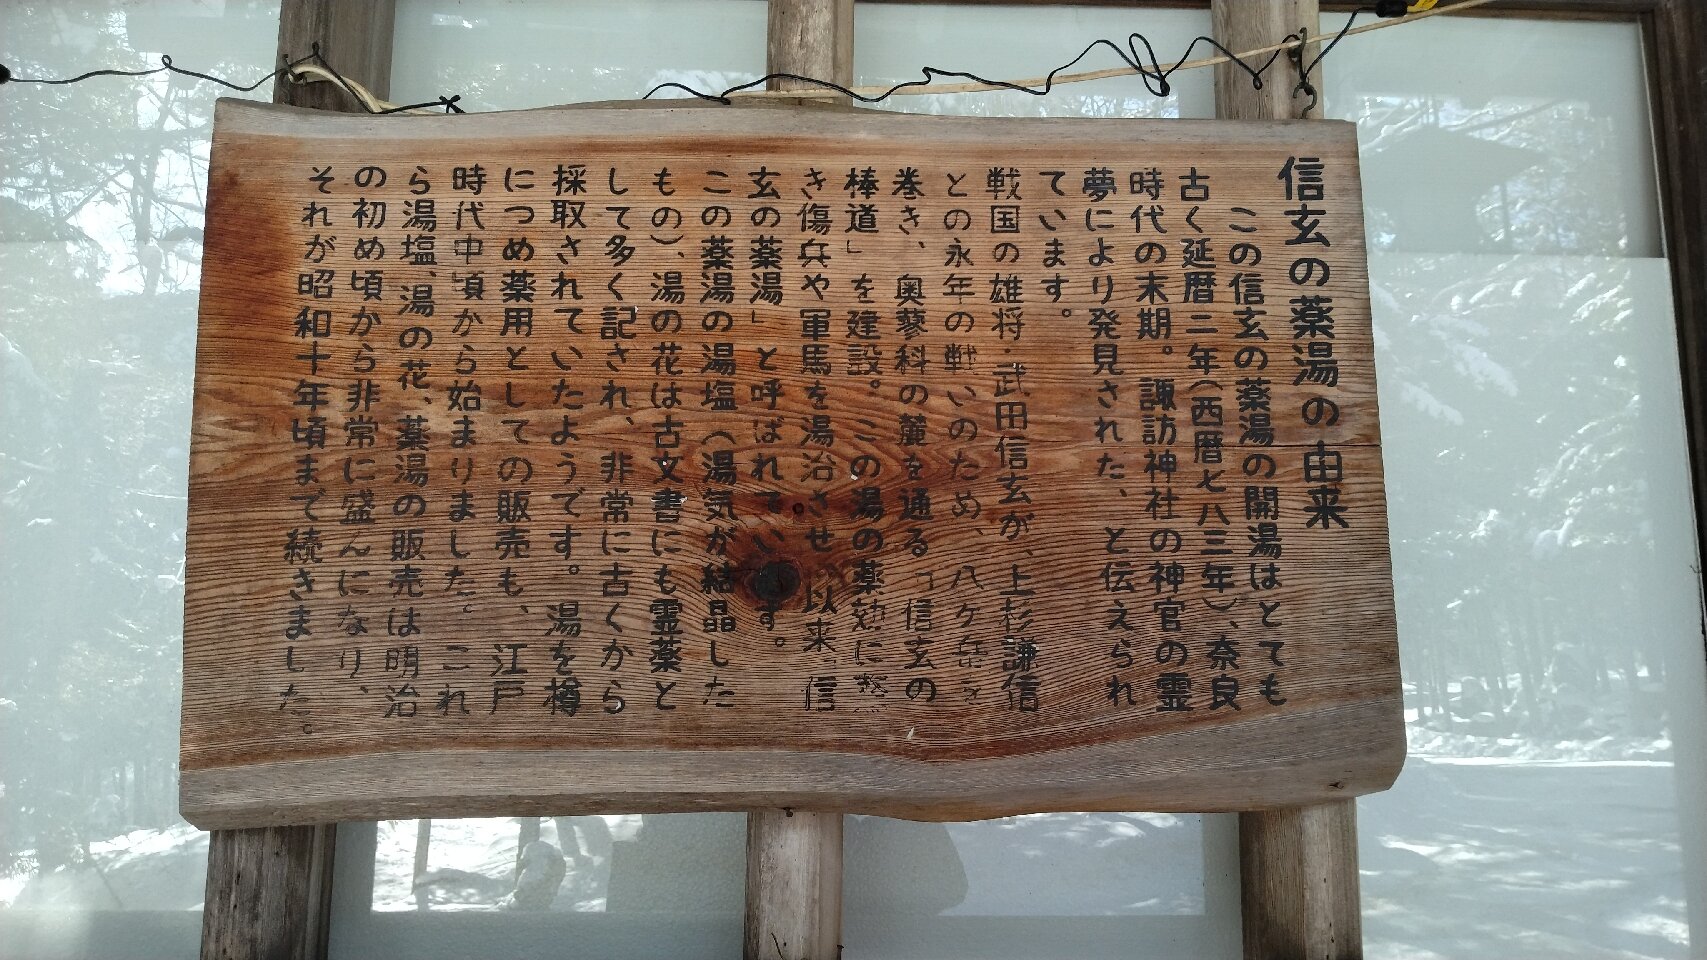 信玄の薬湯の由来
この信玄の薬湯の開湯はとても
古く延暦二年(西暦七八三年)、奈良
時代の末期。諏訪神社の神官の霊
夢により発見された、と伝えられ
ています。
戦国の雄将・武田信玄が、上杉謙信
との永年の戦いのため、八ケ岳を
巻き、奥蓼科の麓を通る「信玄の
棒道」を建設。この湯の薬効に驚
き傷兵や軍馬を湯治させ、以来「信
玄の薬湯」と呼ばれています。
この薬湯の湯塩(湯気が結晶した
もの)、湯の花は古文書にも霊薬と
して多く記され、非常に古くから
採取されていたようです。湯を樽
につめ薬用としての販売も、江戸
時代中頃から始まりました。これ
ら湯塩、湯の花、薬湯の販売は明治
の初め頃から非常に盛んになり、
それが昭和十年頃まで続きました。